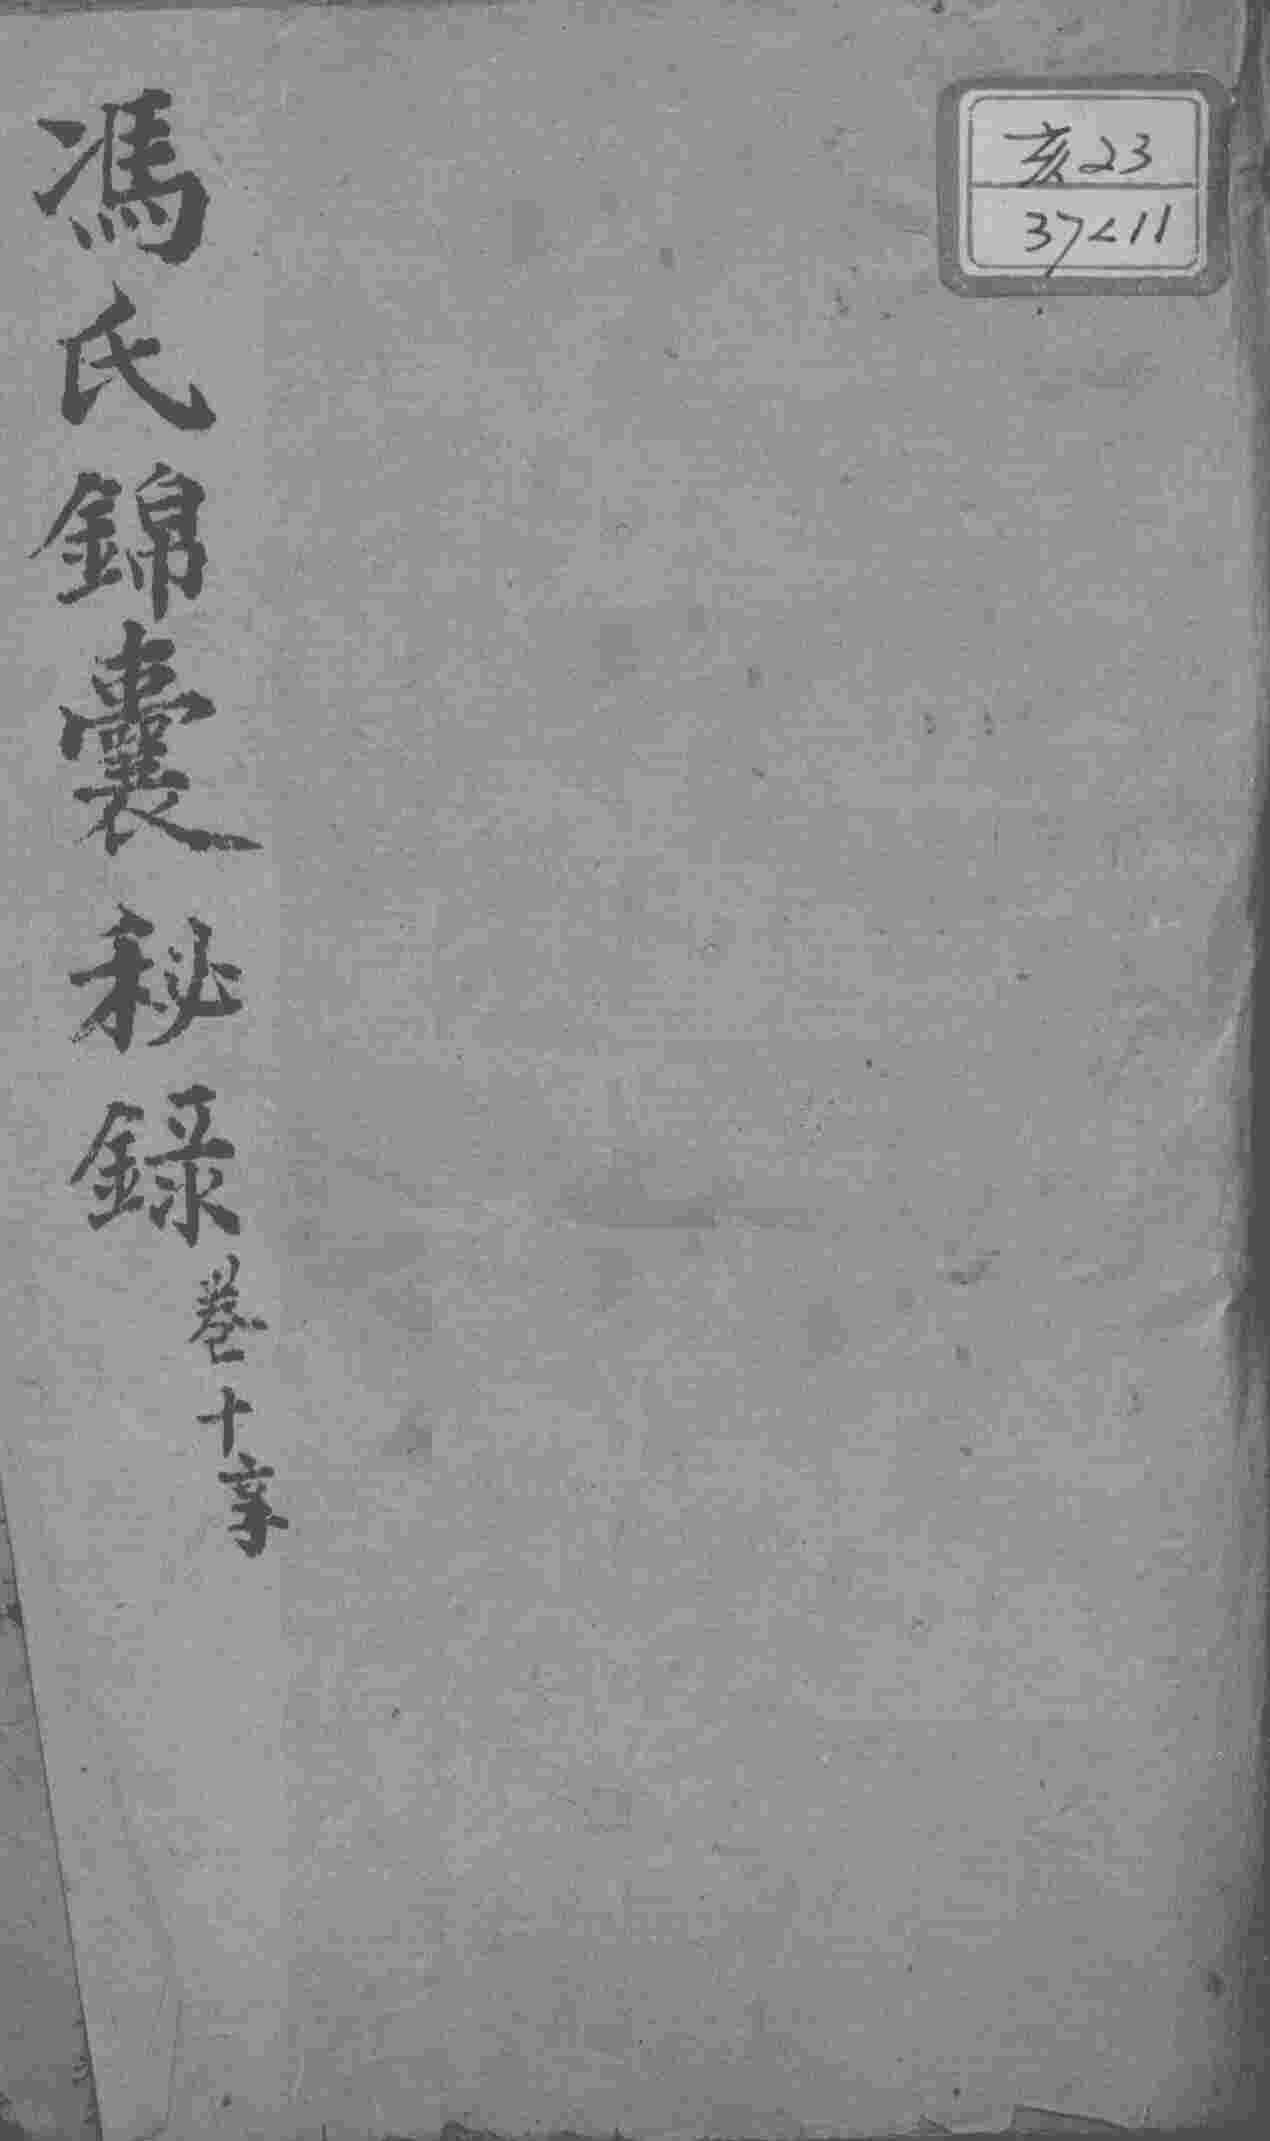 亥23
37<11
馮氏錦囊秘錄
卷十亨